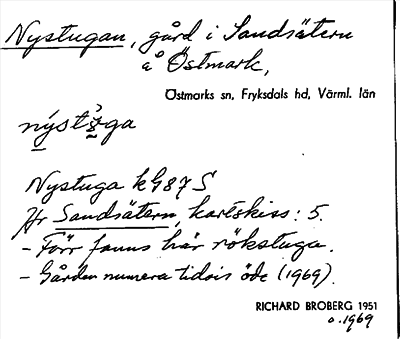 Nystugan, gård i Sandsätern
å Östmark,
Östmarks sn, Fryksdals hd, Värml. län
Nystuga kG87 S
Jfr Sandsätern, kartskiss: 5.
- Förr fanns här rökstuga.
- Gården numera tidvis öde (1969).
RICHARD BROBERG 1951
o. 1969